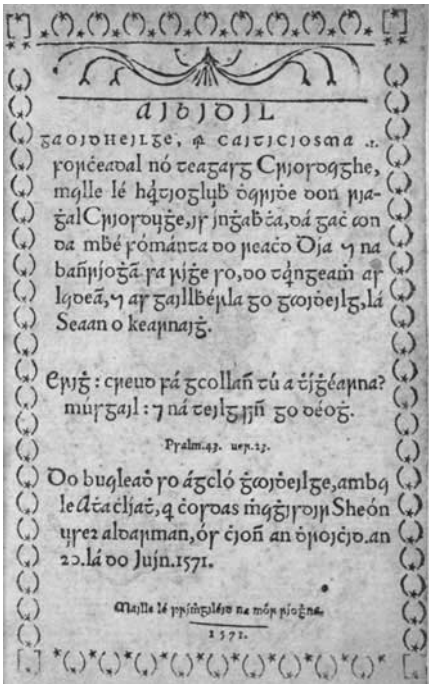 AIBIDIL
GAOIDHEILGE, ⁊ CAITICIOSMA .i.
forċeadal nó teagasg Criosdaighe,
maille lé hairtiogluiḃ ḋairiḋe don ria-
ġal Criosduiġe, is inġaḃṫa, dá gaċ aon
da mbé fómánta do reaċd Dia ⁊ na
bañrioġã sa riġe so, do tairngeaṁ as
laideã, ⁊ as gaillḃérla go gaoiḋeilg, lá
Seaan o kearnaiġ.
Eriġ: creud fá gcollañ tú a ṫiġéarna?
músgail: ⁊ ná teilg siñ go déoġ.
Psalm.43. uer.23.
Do buaileaḋ so ágcló ġaoiḋeilge, ambaile
le Ataċliaṫ, ar ċosdas ṁaiġisdir Sheón
uiser aldarman, ós ċioñ an ḋroiċid. an
20. lá do Juin. 1571.
Maille lé priṁgléid na mór rioġna.
1571.